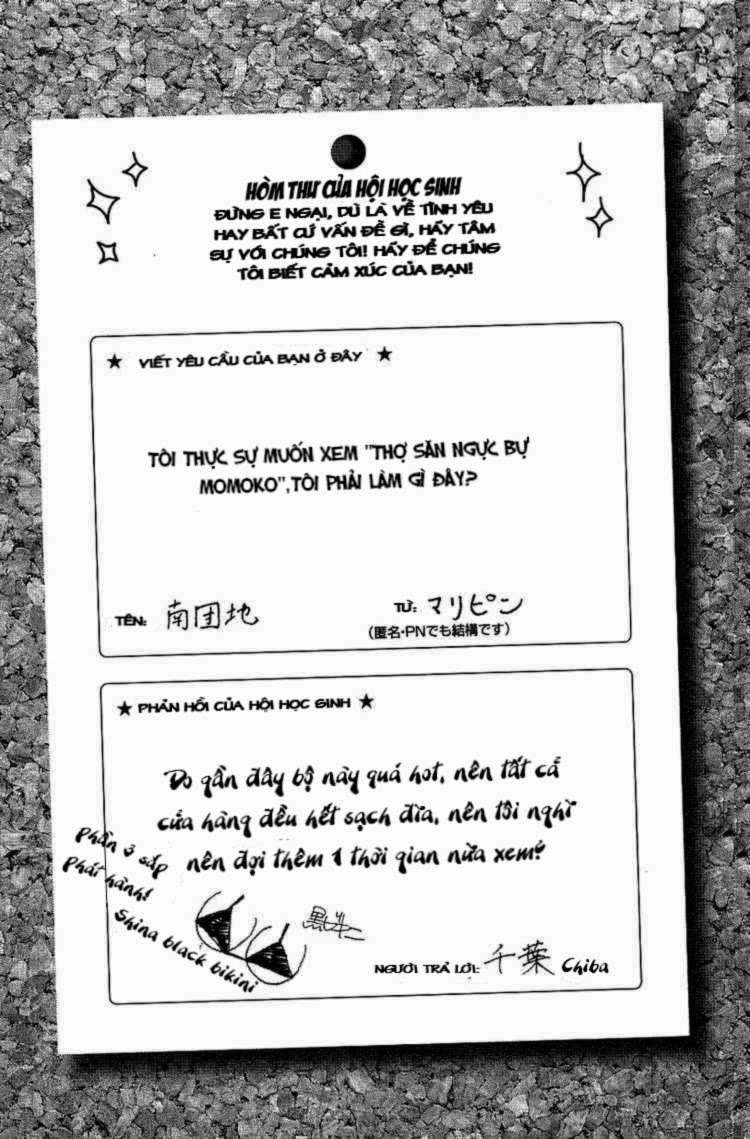 HÒM THƯ CỦA HỘI HỌC SINH
ĐỪNG E NGẠI, DÙ LÀ VỀ TÌNH YÊU
HAY BẤT CỨ VẤN ĐỀ GÌ, HÃY TÂM
SỰ VỚI CHÚNG TÔI! HÃY ĐỂ CHÚNG
TÔI BIẾT CẢM XÚC CỦA BẠN!
★ VIẾT YÊU CẦU CỦA BẠN Ở ĐÂY ★
TÔI THỰC SỰ MUỐN XEM "THỢ SĂN NGỰC BỰ
MOMOKO",TÔI PHẢI LÀM GÌ ĐÂY?
TÊN: 南団地
TỪ: マリピン
(匿名・PNでも結構です)
★ PHẢN HỒI CỦA HỘI HỌC SINH ★
Do gần đây bộ này quá hot, nên tất cả
cửa hàng đều hết sạch đĩa, nên tôi nghĩ
nên đợi thêm 1 thời gian nữa xem?
Phần 3 sắp
phát hành!
Shina black bikini
黒ビキニ
NGƯỜI TRẢ LỜI: 千葉 Chiba